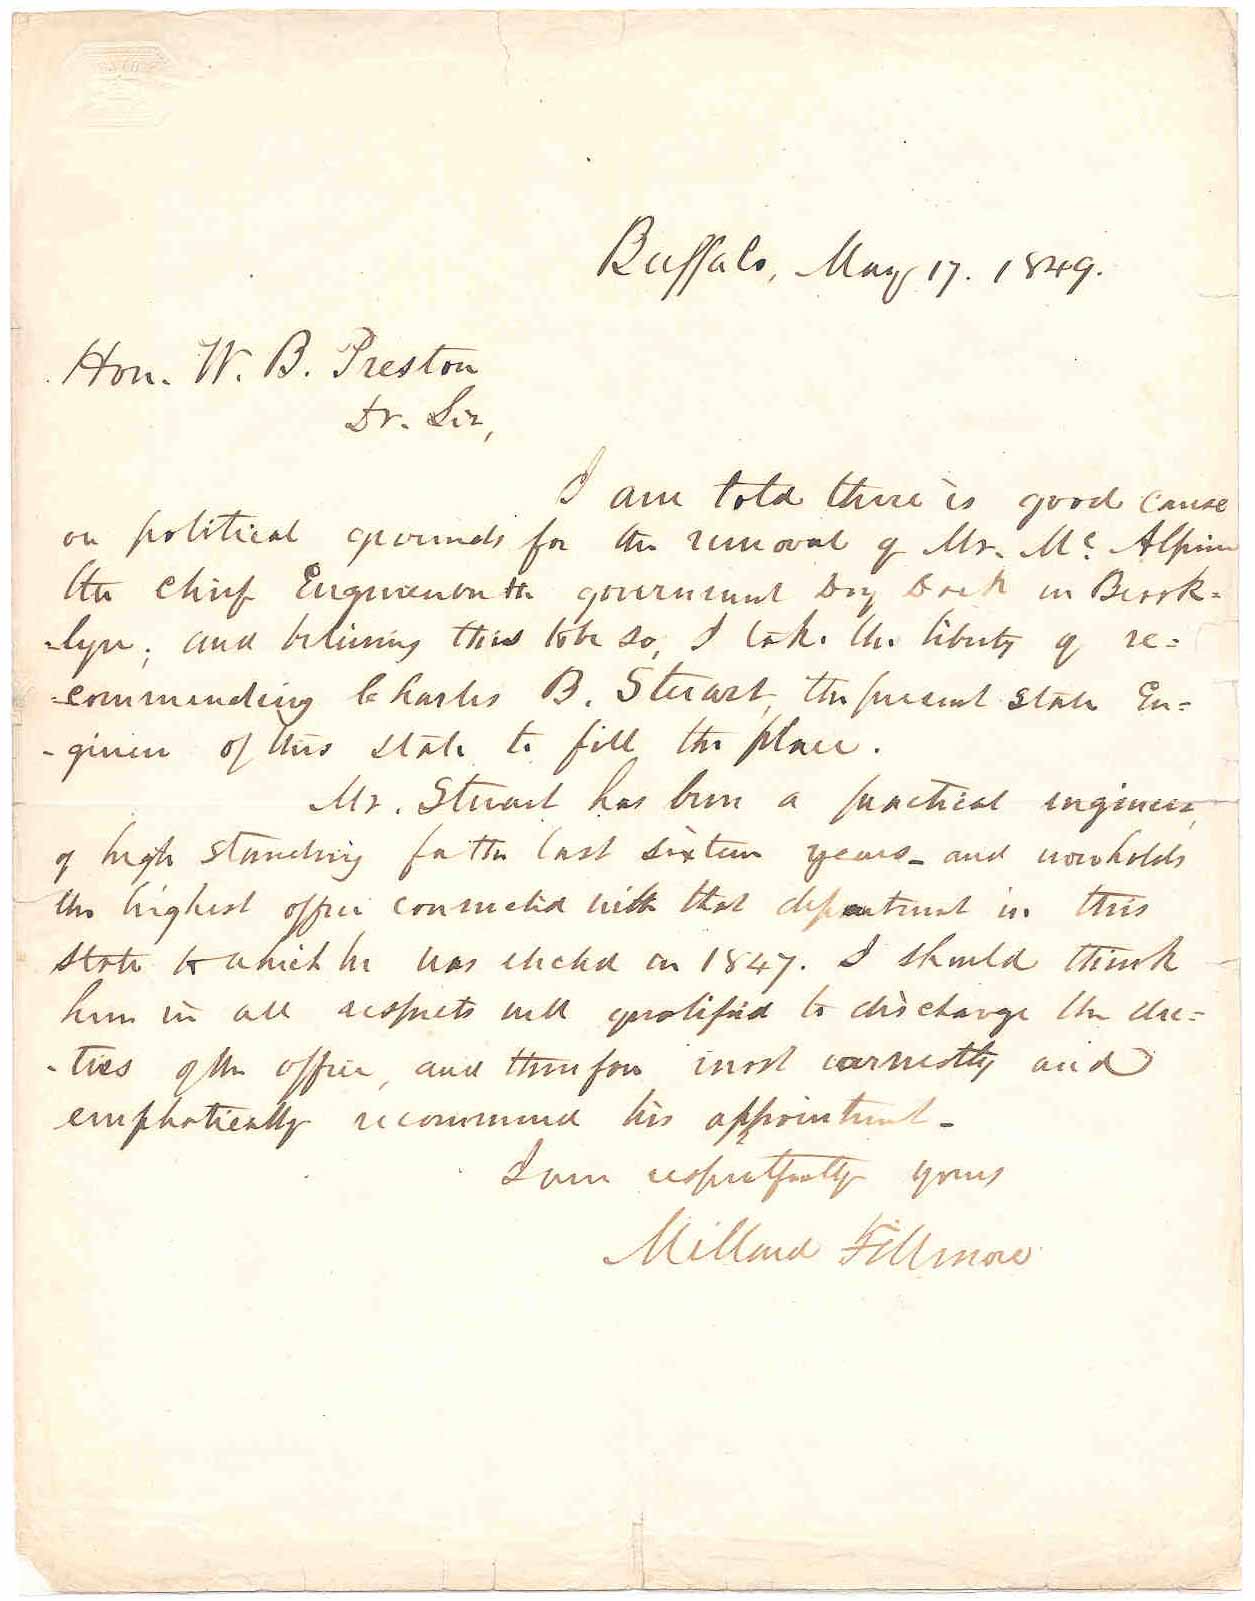 Buffalo, May 17. 1849.
Hon. W. B. Preston
Dr. Sir,
I am told there is good cause
on political grounds for the removal of Mr. Mc. Alpine
the chief Engineer on the government Dry Dock in Brook=
=lyn; and believing this to be so, I take the liberty of re=
=commending Charles B. Stuart, the present State En=
-gineer of this state to fill the place.
Mr. Stuart has been a practical engineer,
of high standing for the last sixteen years - and now holds
the highest office connected with that department in this
state to which he was elected in 1847. I should think
him in all respects well qualified to discharge the du=
-ties of the office, and therefore most earnestly and
emphatically recommend his appointment -
I am respectfully yours
Millard Fillmore
BATH